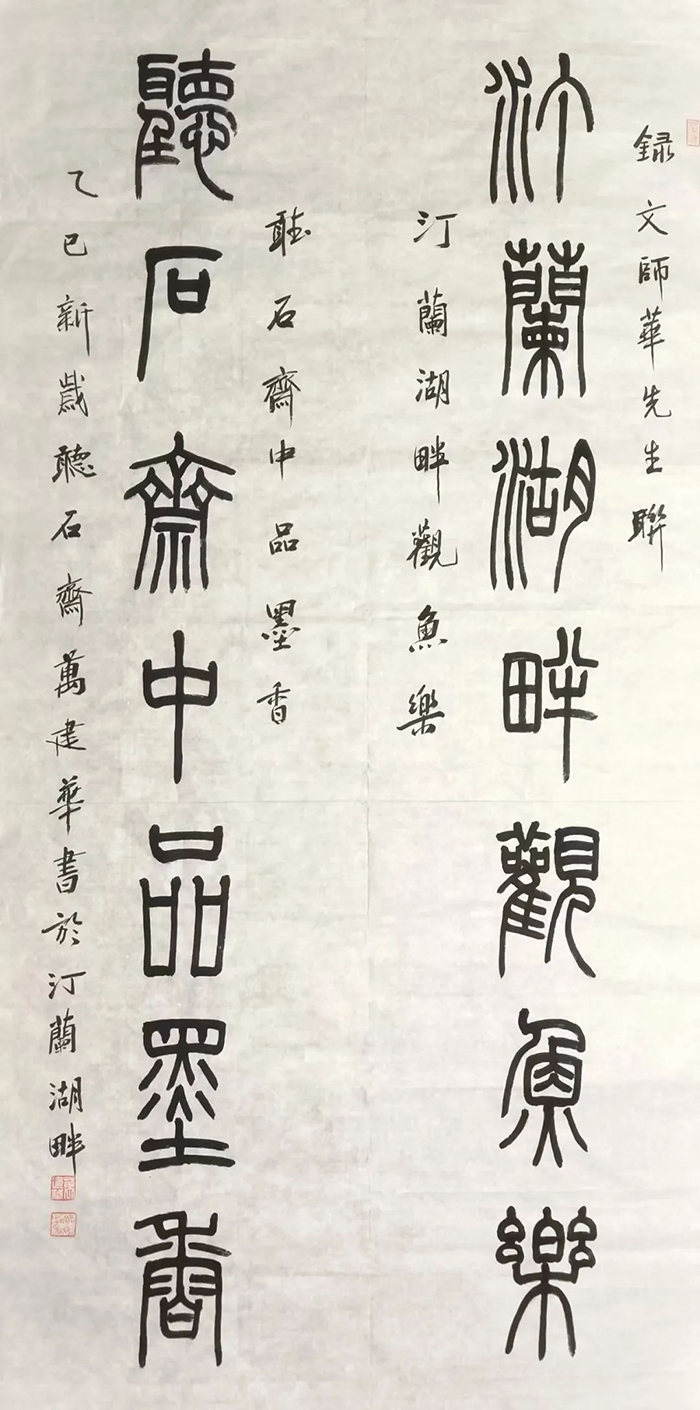 録文師華先生聯
汀蘭湖畔觀魚樂
汀蘭湖畔觀魚樂
聽石齋中品墨香
聽石齋中品墨香
乙巳新歲聽石齋萬建華書於汀蘭湖畔